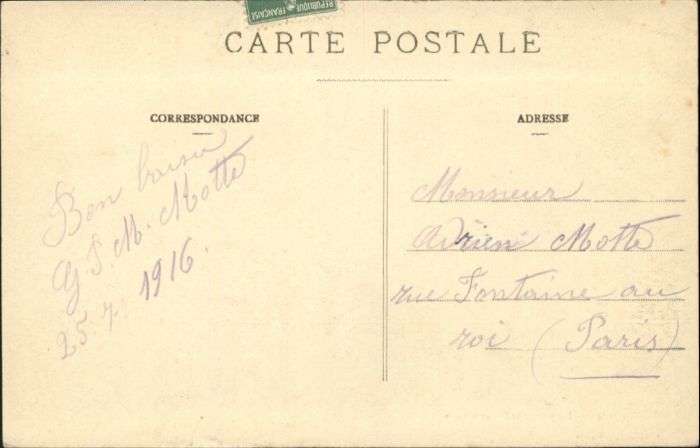 RÉPUBLIQUE
FRANÇAISE
CARTE POSTALE
CORRESPONDANCE
ADRESSE
Bon baiser
G. S. M. Motte
25.7.1916.
Monsieur
Adrien Motte
rue Fontaine au
roi (Paris)